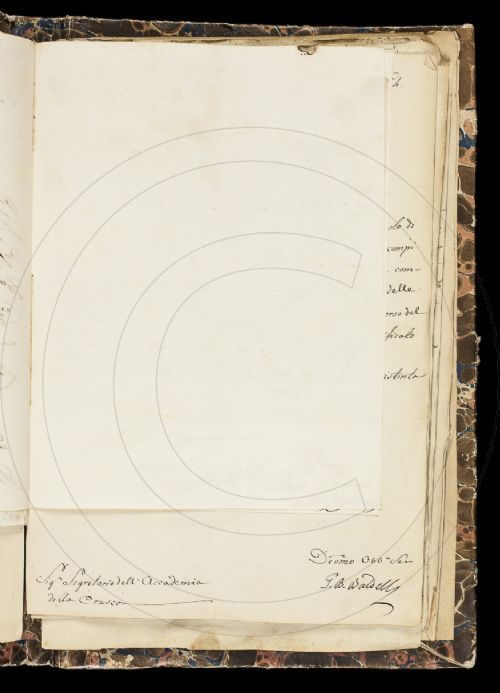 olo di
compi
com=
delle
orso del
ificato
istinta
Devmo Obb. Ser
G. B. Baldelli
Sigr. Segretario dell'Accademia
della Crusca